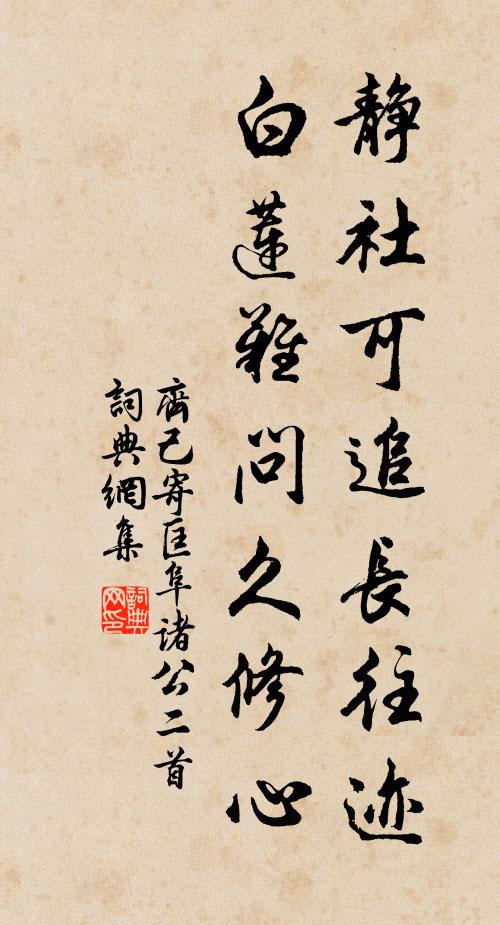 静社可追長往迹
白蓮難問久修心
齊己寄匡阜诸公二首
詞典網集
詞典网印